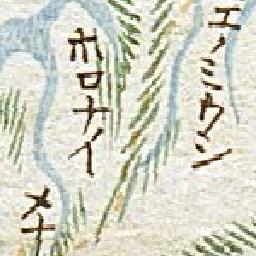 エノミウシ
ホロナイ
メナ